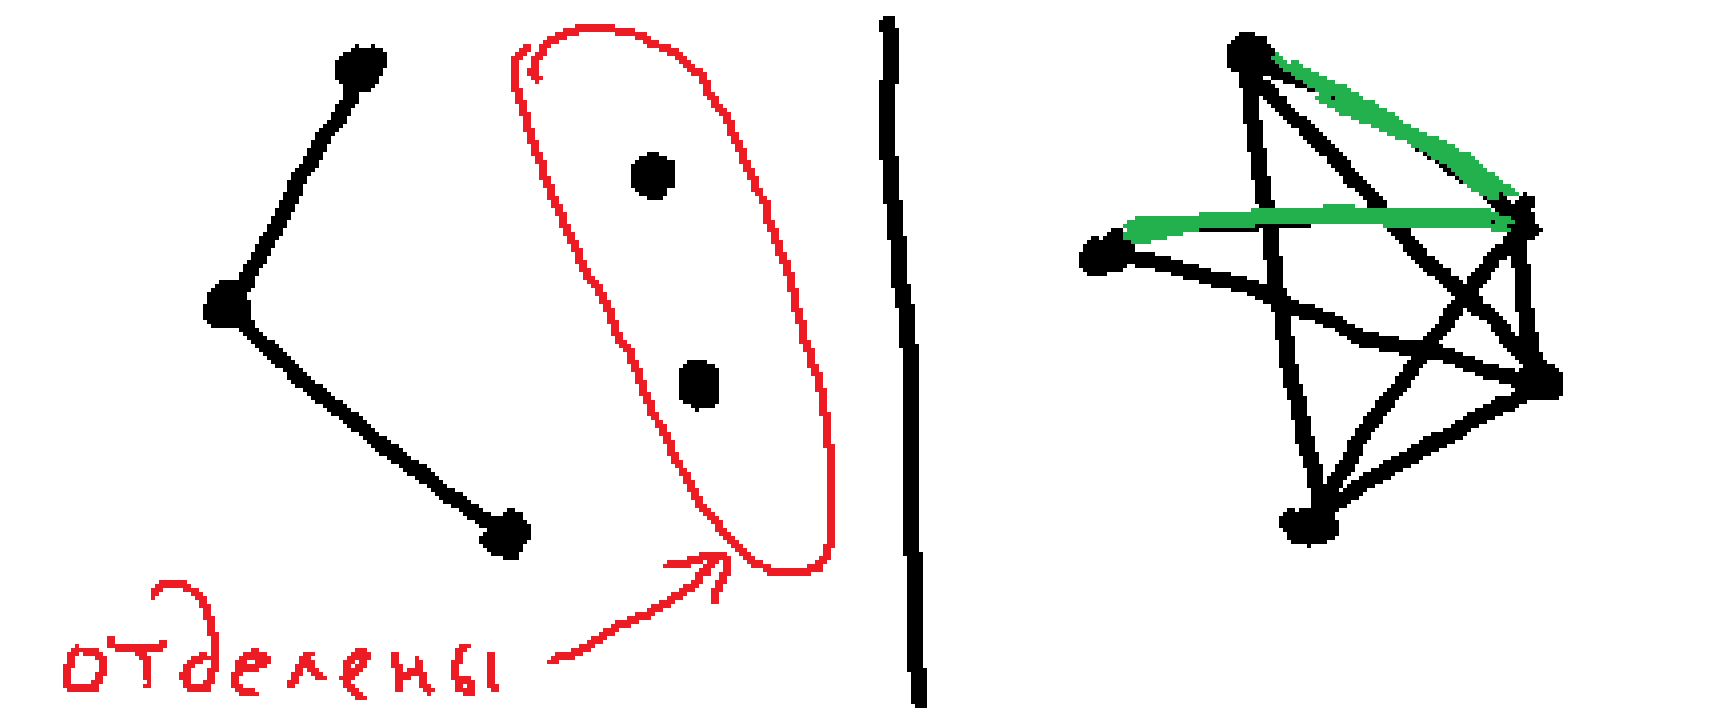 отделены